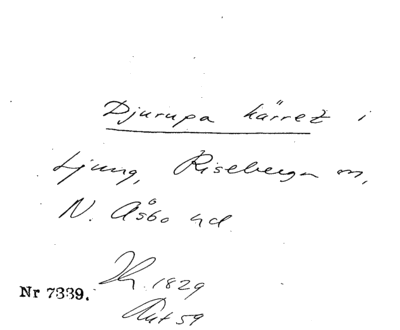 Djurupa kärret i
Ljung, Riseberga sn,
N. Åsbo hd.
1829
Nr 7339.
Rut 59